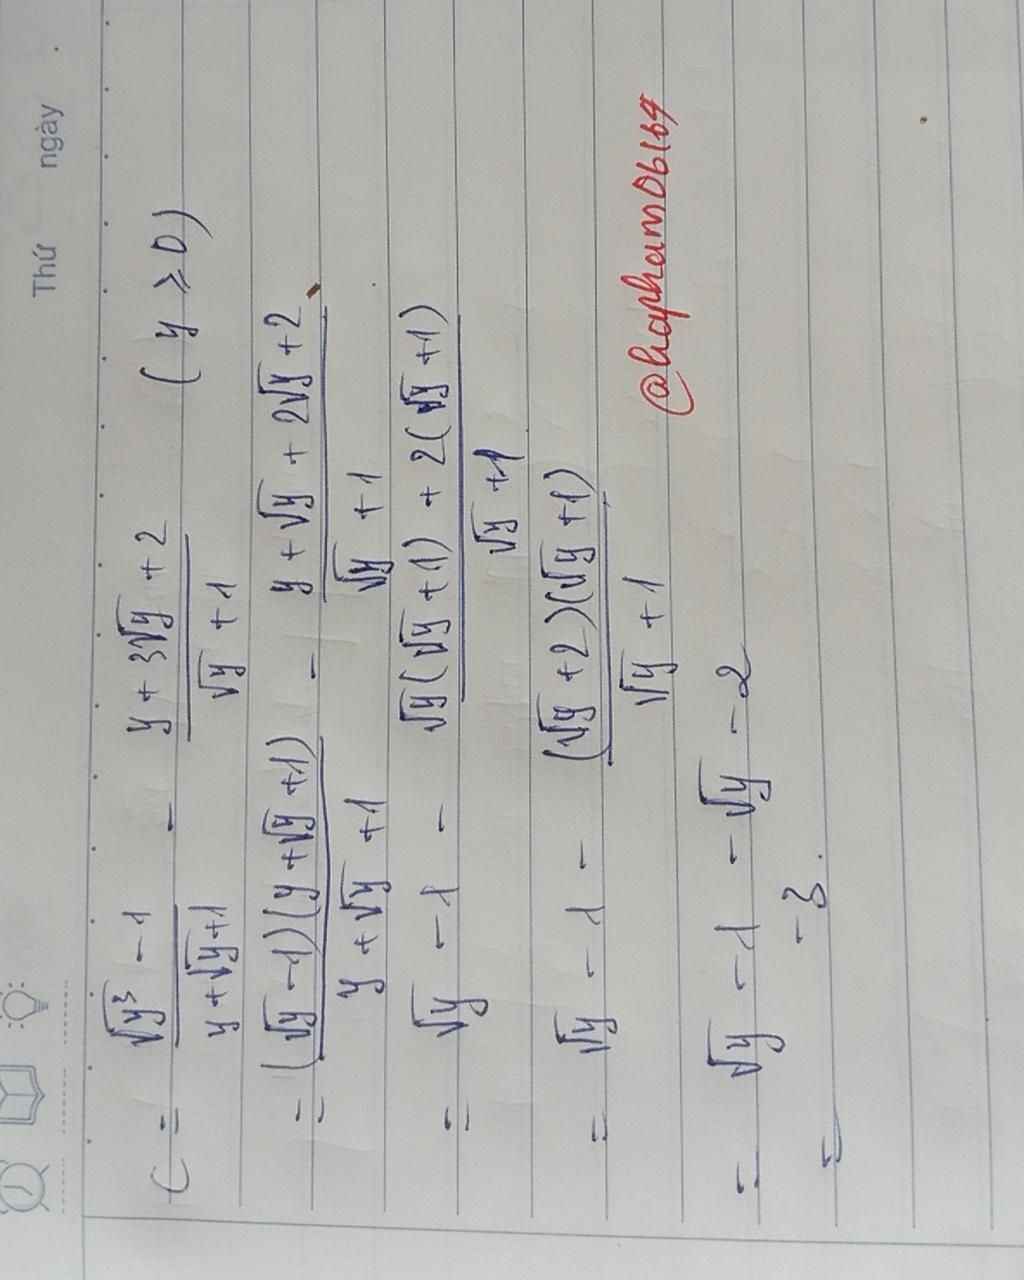 Thứ ngày
C = (√y³ - 1)/(y + √y + 1) - (y + 3√y + 2)/(√y + 1) (y ≥ 0)
= ((√y - 1)(y + √y + 1))/(y + √y + 1) - (y + √y + 2√y + 2)/(√y + 1)
= √y - 1 - (√y(√y + 1) + 2(√y + 1))/(√y + 1)
= √y - 1 - ((√y + 2)(√y + 1))/(√y + 1)
= √y - 1 - √y - 2
= -3.
@hapham06169